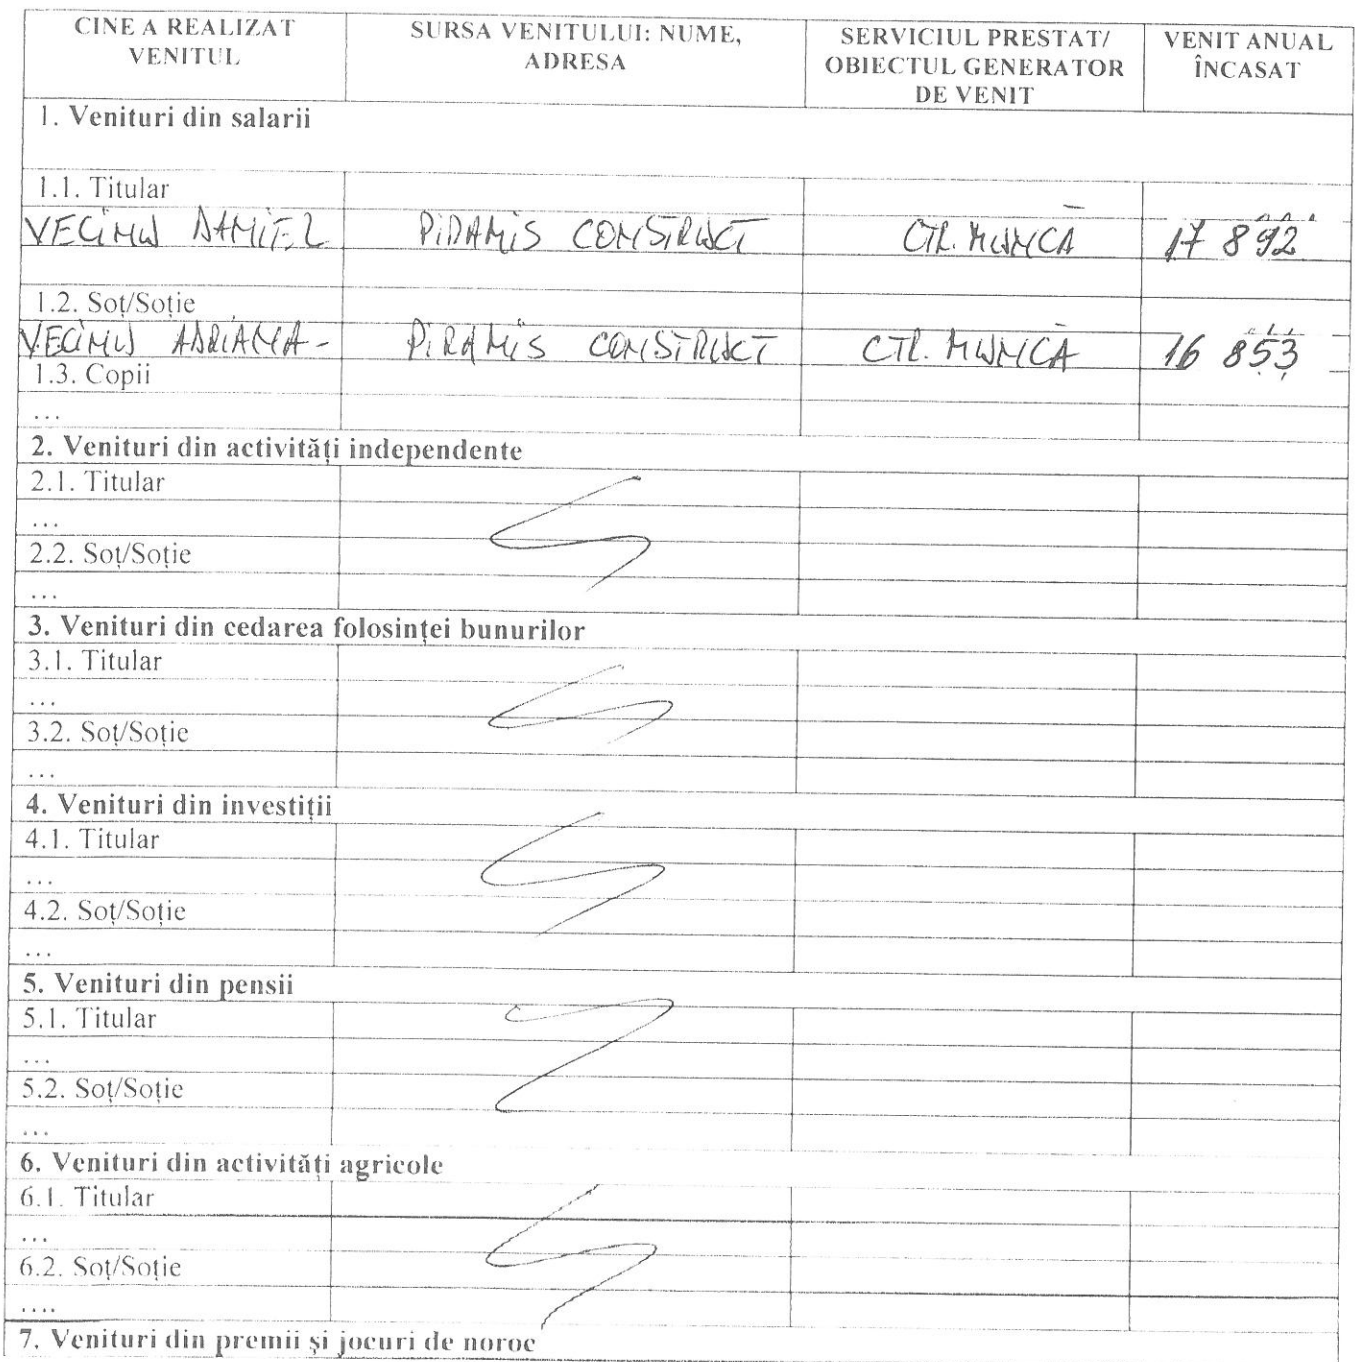 CINE A REALIZAT VENITUL
SURSA VENITULUI: NUME, ADRESA
SERVICIUL PRESTAT/ OBIECTUL GENERATOR DE VENIT
VENIT ANUAL ÎNCASAT
1. Venituri din salarii
1.1. Titular
VECINU DANIEL PIRAMIS CONSTRUCT CTR. MUNCĂ 17 892
1.2. Soț/Soție
VECINU ADRIANA - PIRAMIS CONSTRUCT CTR. MUNCĂ 16 853
1.3. Copii
...
2. Venituri din activități independente
2.1. Titular
...
2.2. Soț/Soție
...
3. Venituri din cedarea folosinței bunurilor
3.1. Titular
...
3.2. Soț/Soție
...
4. Venituri din investiții
4.1. Titular
...
4.2. Soț/Soție
...
5. Venituri din pensii
5.1. Titular
...
5.2. Soț/Soție
...
6. Venituri din activități agricole
6.1. Titular
...
6.2. Soț/Soție
....
7. Venituri din premii și jocuri de noroc